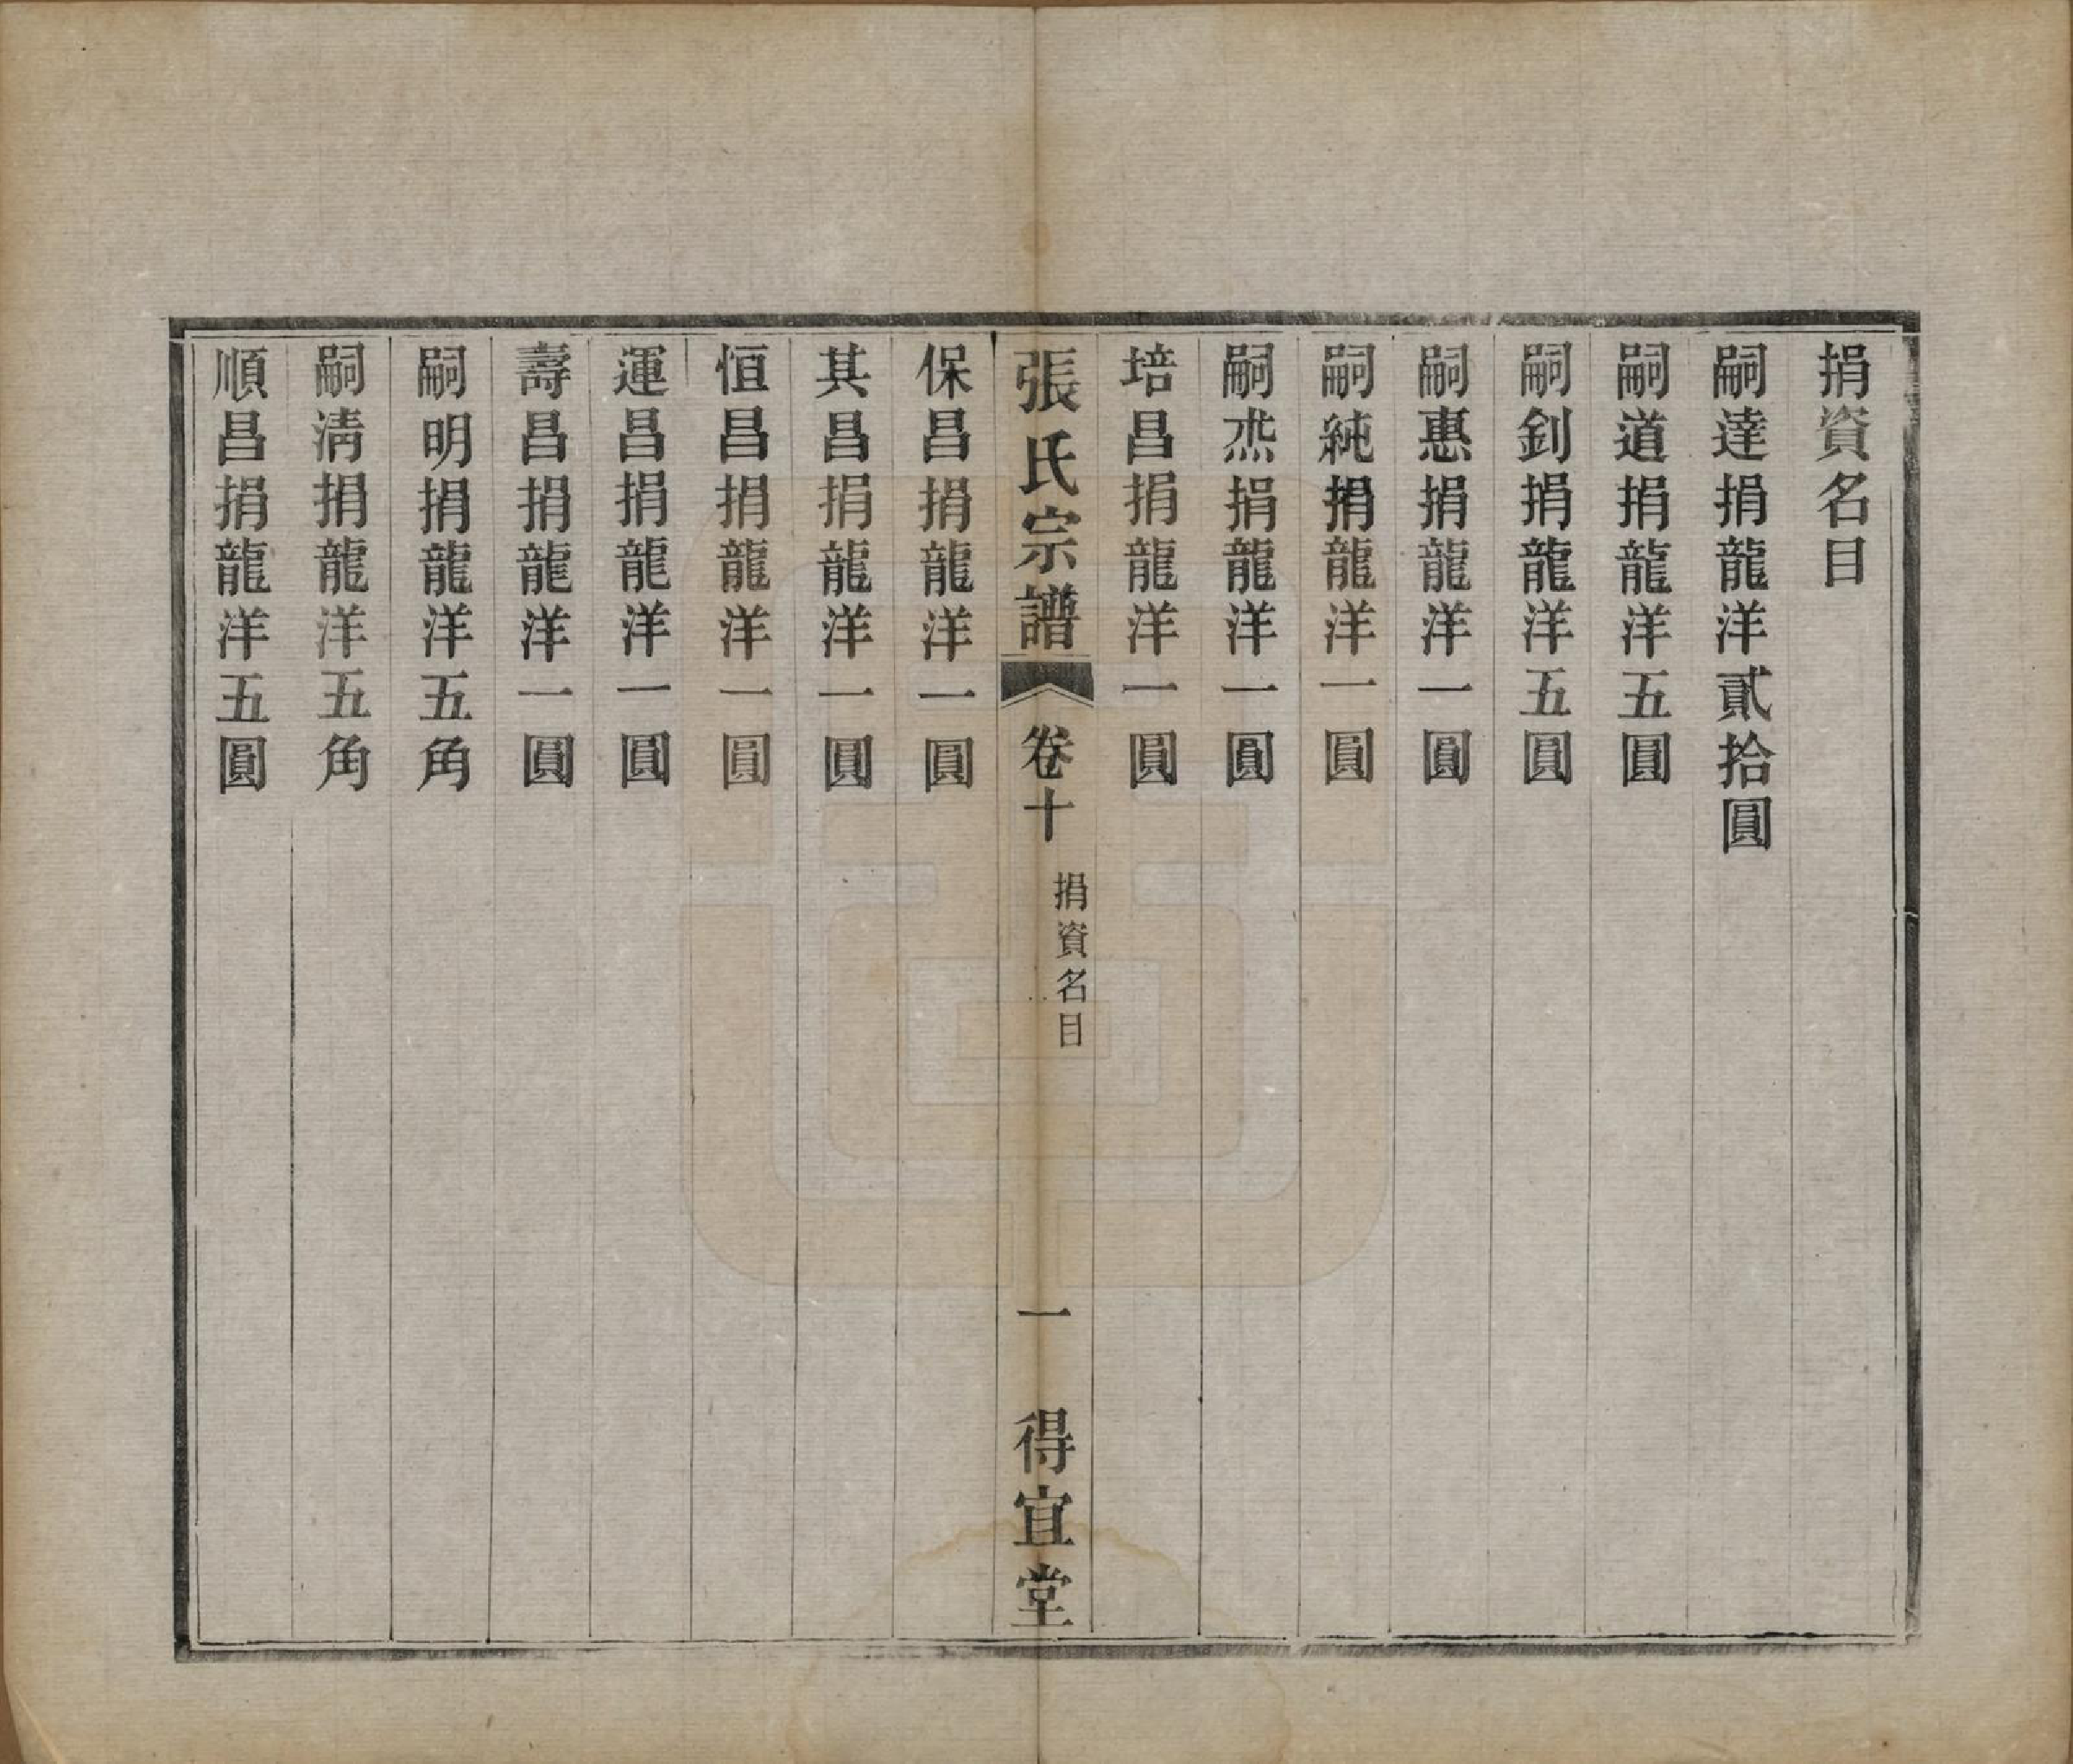 捐資名目
嗣達捐龍洋貳拾圓
嗣道捐龍洋五圓
嗣釗捐龍洋五圓
嗣惠捐龍洋一圓
嗣純捐龍洋一圓
嗣捐龍洋一圓
培昌捐龍洋一圓
張氏宗譜 卷十 捐資名目 一 得宜堂
保昌捐龍洋一圓
其昌捐龍洋一圓
恒昌捐龍洋一圓
運昌捐龍洋一圓
壽昌捐龍洋一圓
嗣明捐龍洋五角
嗣淸捐龍洋五角
順昌捐龍洋五圓